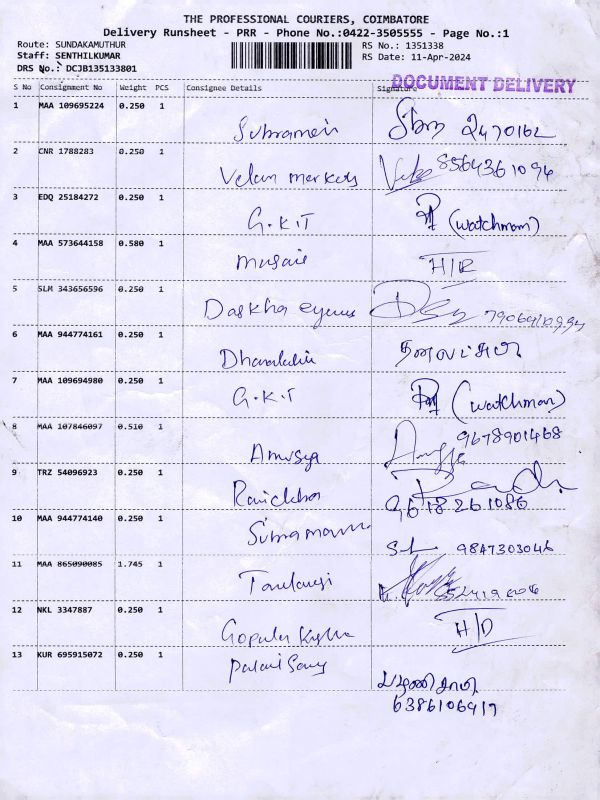 THE PROFESSIONAL COURIERS, COIMBATORE
Delivery Runsheet - PRR - Phone No.:0422-3505555 - Page No.:1
Route: SUNDAKAMUTHUR
Staff: SENTHILKUMAR
DRS No.: DCJB135133801
RS No.: 1351338
RS Date: 11-Apr-2024
DOCUMENT DELIVERY
S No Consignment No Weight PCS Consignee Details Signature
1 MAA 109695224 0.250 1
2470162
2 CNR 1788283 0.250 1
Velan markets 8564361094
3 EDQ 25184272 0.250 1
G.K.T (watchman)
4 MAA 573644158 0.580 1
H/R
5 SLM 343656596 0.250 1
Daskha
6 MAA 944774161 0.250 1
தனலட்சுமி
7 MAA 109694980 0.250 1
G.K.T (watchman)
8 MAA 107846097 0.510 1
Anusya 9678901468
9 TRZ 54096923 0.250 1
9618261086
10 MAA 944774140 0.250 1
9847303046
11 MAA 865090085 1.745 1
12 NKL 3347887 0.250 1
H/D
13 KUR 695915072 0.250 1
Palani Samy
பழனிசாமி
6386106917